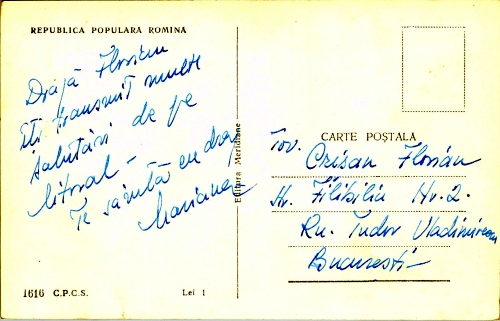 REPUBLICA POPULARA ROMINA
Dragă Florian
Iți transmit multe
salutări de pe
litoral -
Te sărută cu drag
Mariana
Editura Meridiane
CARTE POȘTALA
Tov.
Crișan Florian
Str. Filibilia Nr. 2.
Rn. Tudor Vladimirescu
București -
1616 C.P.C.S. Lei 1